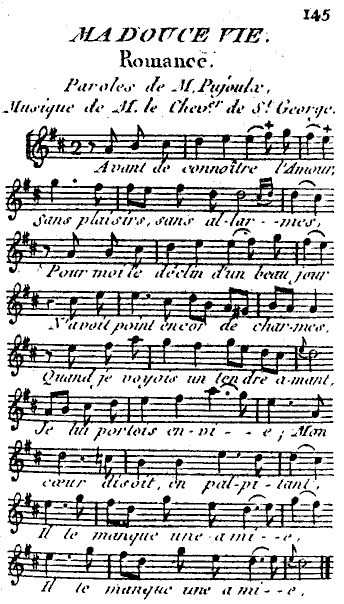 145
MA DOUCE VIE.
Romance.
Paroles de M. Pujoulx,
Musique de M. le Chevᵉʳ de Sᵗ George.
Avant de connoître l'Amour,
Sans plaisirs, sans al-lar--mes,
Pour moi le déclin d'un beau jour
N'avoit point encor de char-mes.
Quand je voyois un tendre a-mant,
Je lui portois en-vi--e; Mon
cœur disoit, en pal-pi-tant,
Il te manque une a-mi--e,
Il te manque une a mi--e,